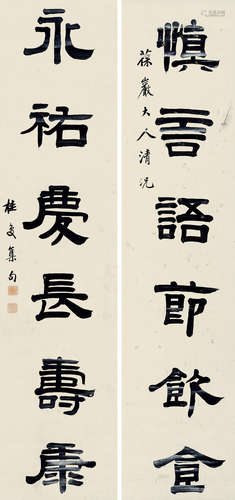 慎言語節飲食
葆巖大人清況
永祐慶長壽康
桂馥集句